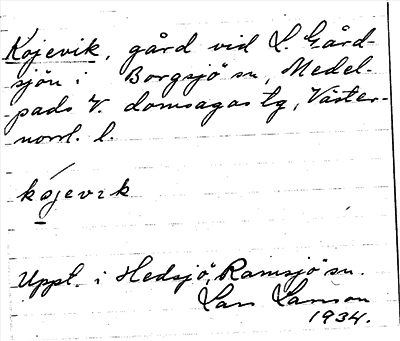 Kojevik, gård vid L. Gård-
sjön i Borgsjö sn, Medel-
pads V. domsagas tg, Väster-
norrl. l.
kojevik
Uppt. i Hedsjö, Ramsjö sn.
Lars Larsson
1934.